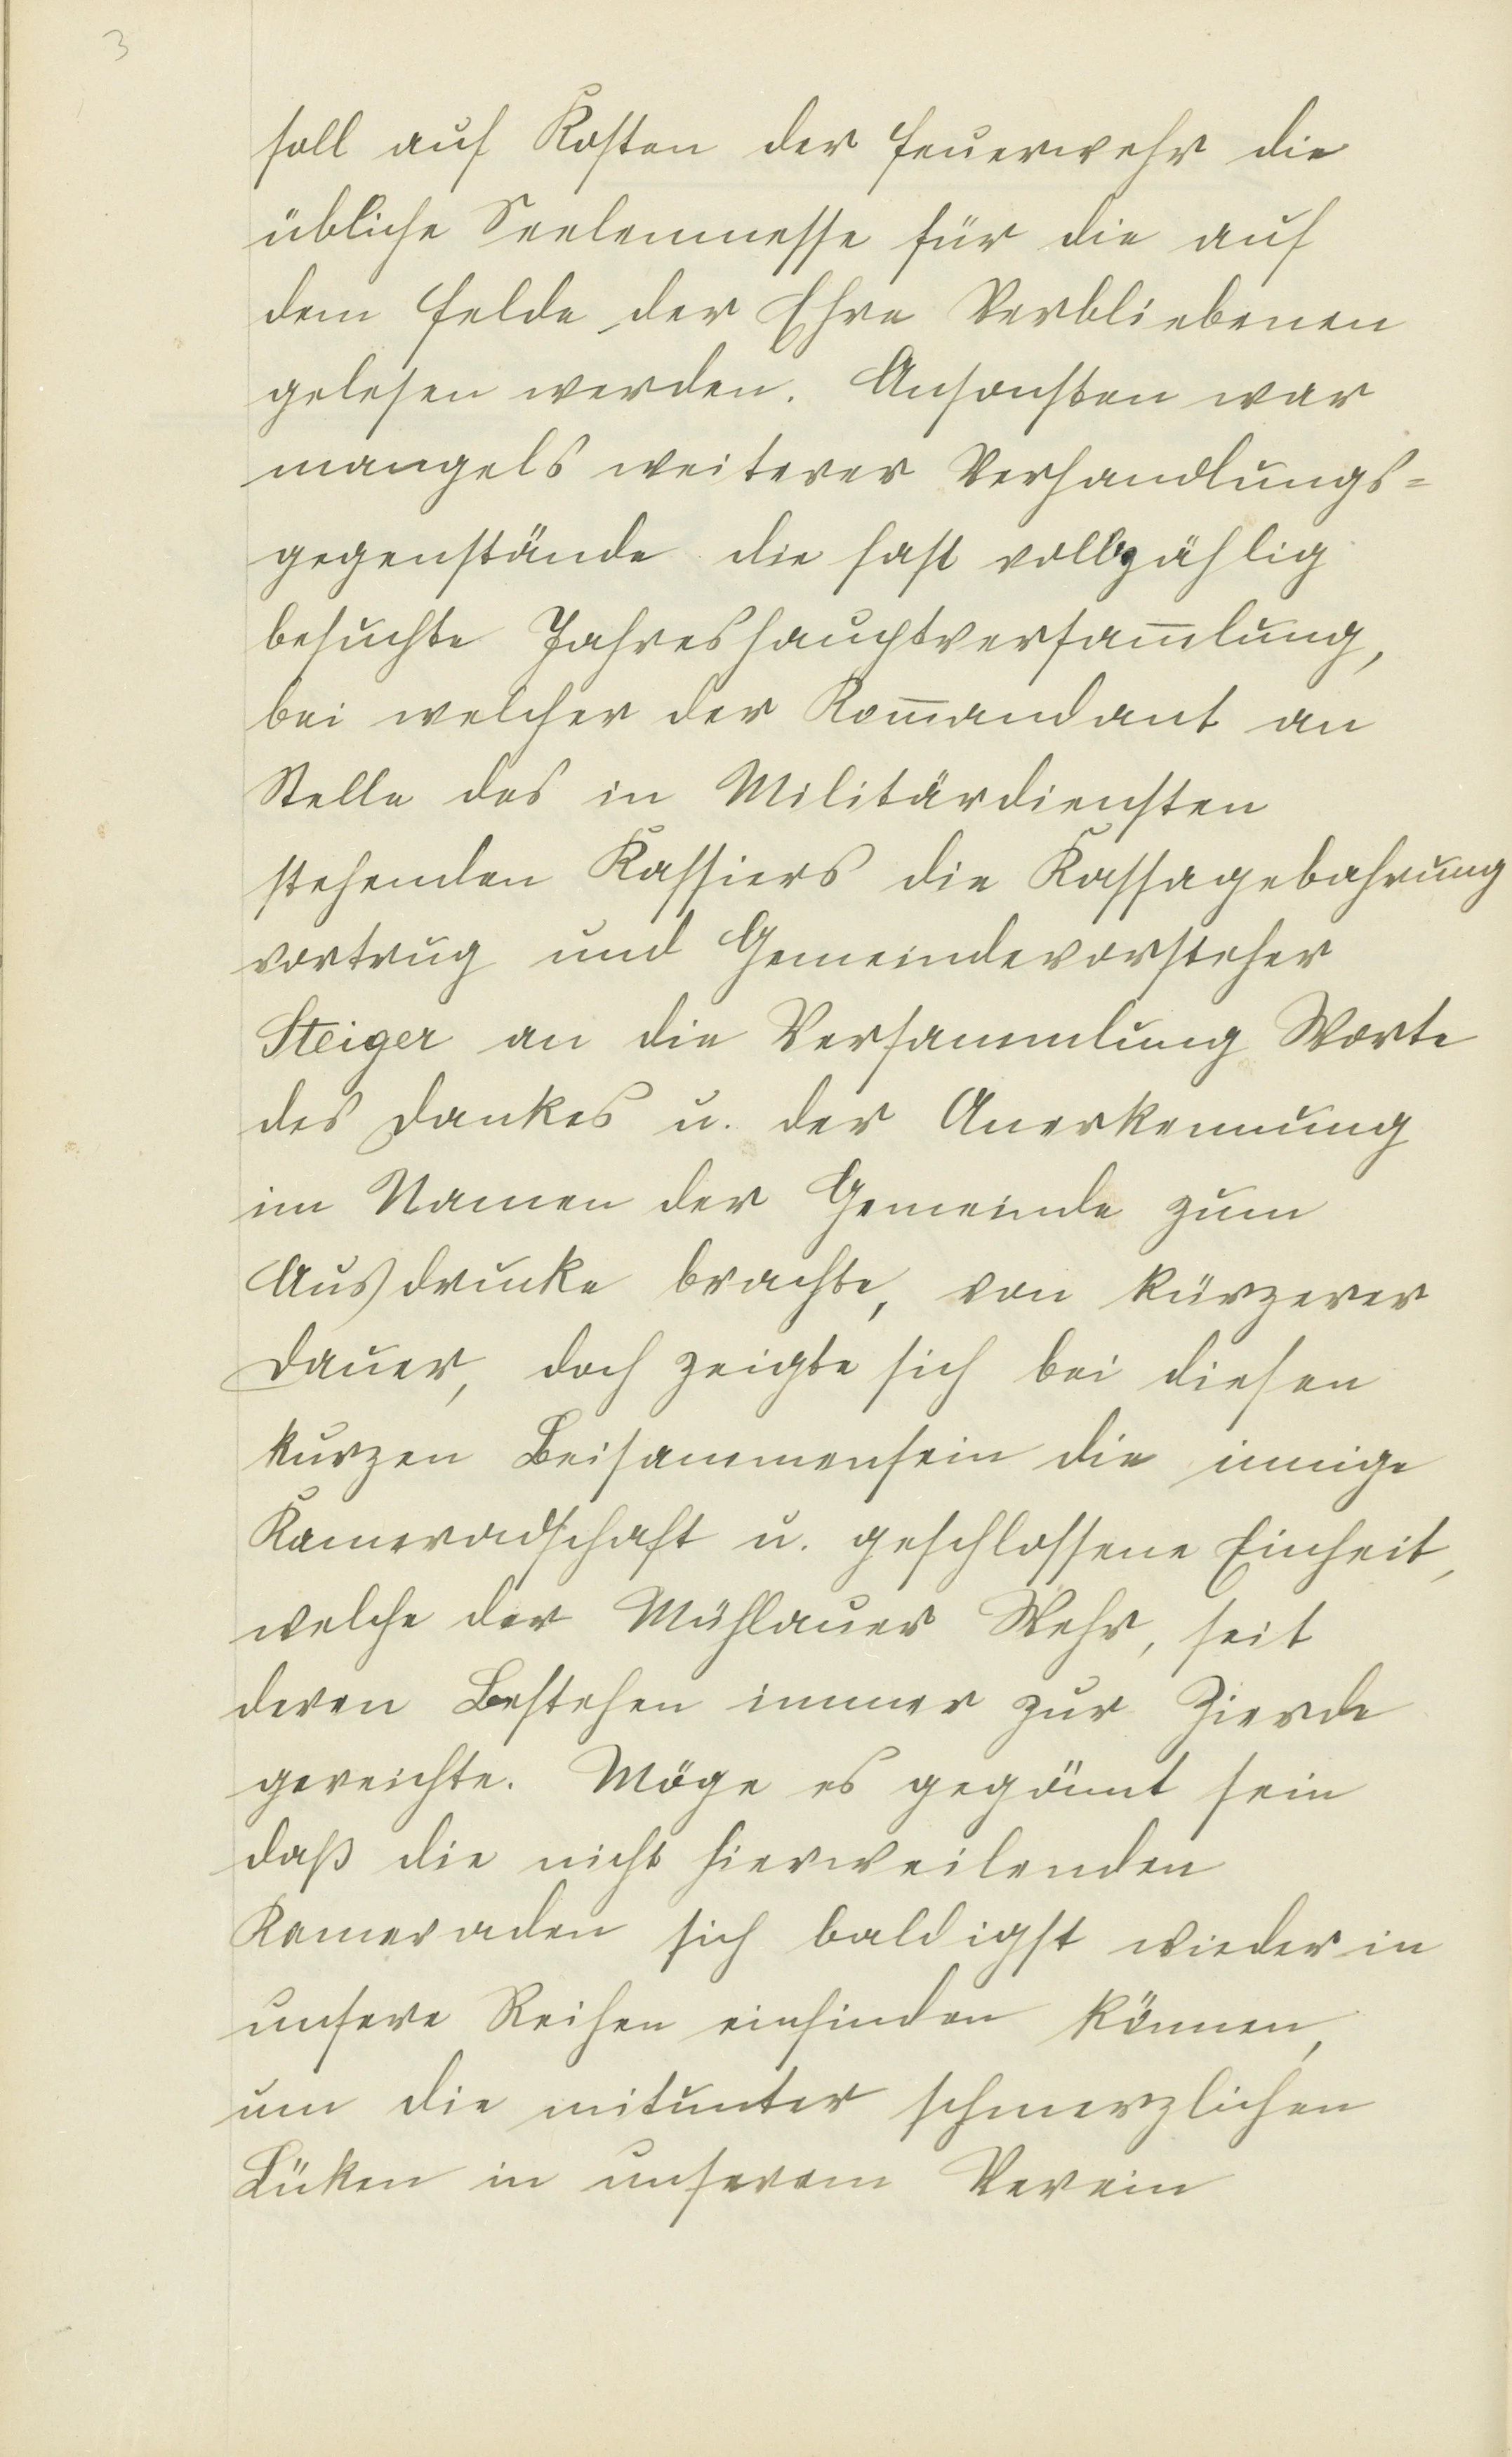 3
soll auf Kosten der Feuerwehr die
übliche Seelenmesse für die auf
dem Felde der Ehre Verbliebenen
gelesen werden. Ansonsten war
mangels weiterer Verhandlungs=
gegenstände die fast vollzählig
besuchte Jahreshauptversam̅lung,
bei welcher der Kom̅andant an
Stelle des in Militärdiensten
stehenden Kassiers die Kassagebahrung
vortrug und Gemeindevorsteher
Steiger an die Versammlung Worte
des Dankes u. der Anerkennung
im Namen der Gemeinde zum
Ausdrucke brachte, von kürzerer
Dauer, doch zeigte sich bei diesen
kurzen Beisammensein die innige
Kameradschaft u. geschlossene Einheit,
welche der Mühlauer Wehr, seit
deren Bestehen immer zur Zierde
gereichte. Möge es gegönnt sein
daß die nicht hierweilenden
Kameraden sich baldigst wieder in
unsere Reihen einfinden können,
um die mitunter schmerzlichen
Lüken in unserem Verein